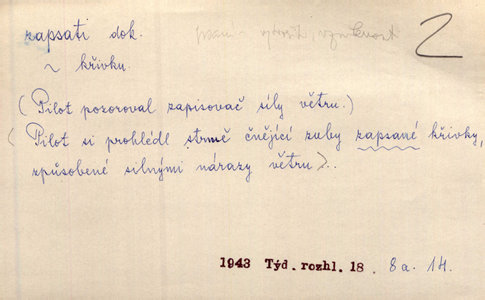 zapsati dok.
2
~ křivku.
(Pilot pozoroval zapisovač síly větru.)
(Pilot si prohlédl strmě čnějící zuby zapsané křivky,
způsobené silnými nárazy větru>..
1943 Týd. rozhl. 18. 8a. 14.